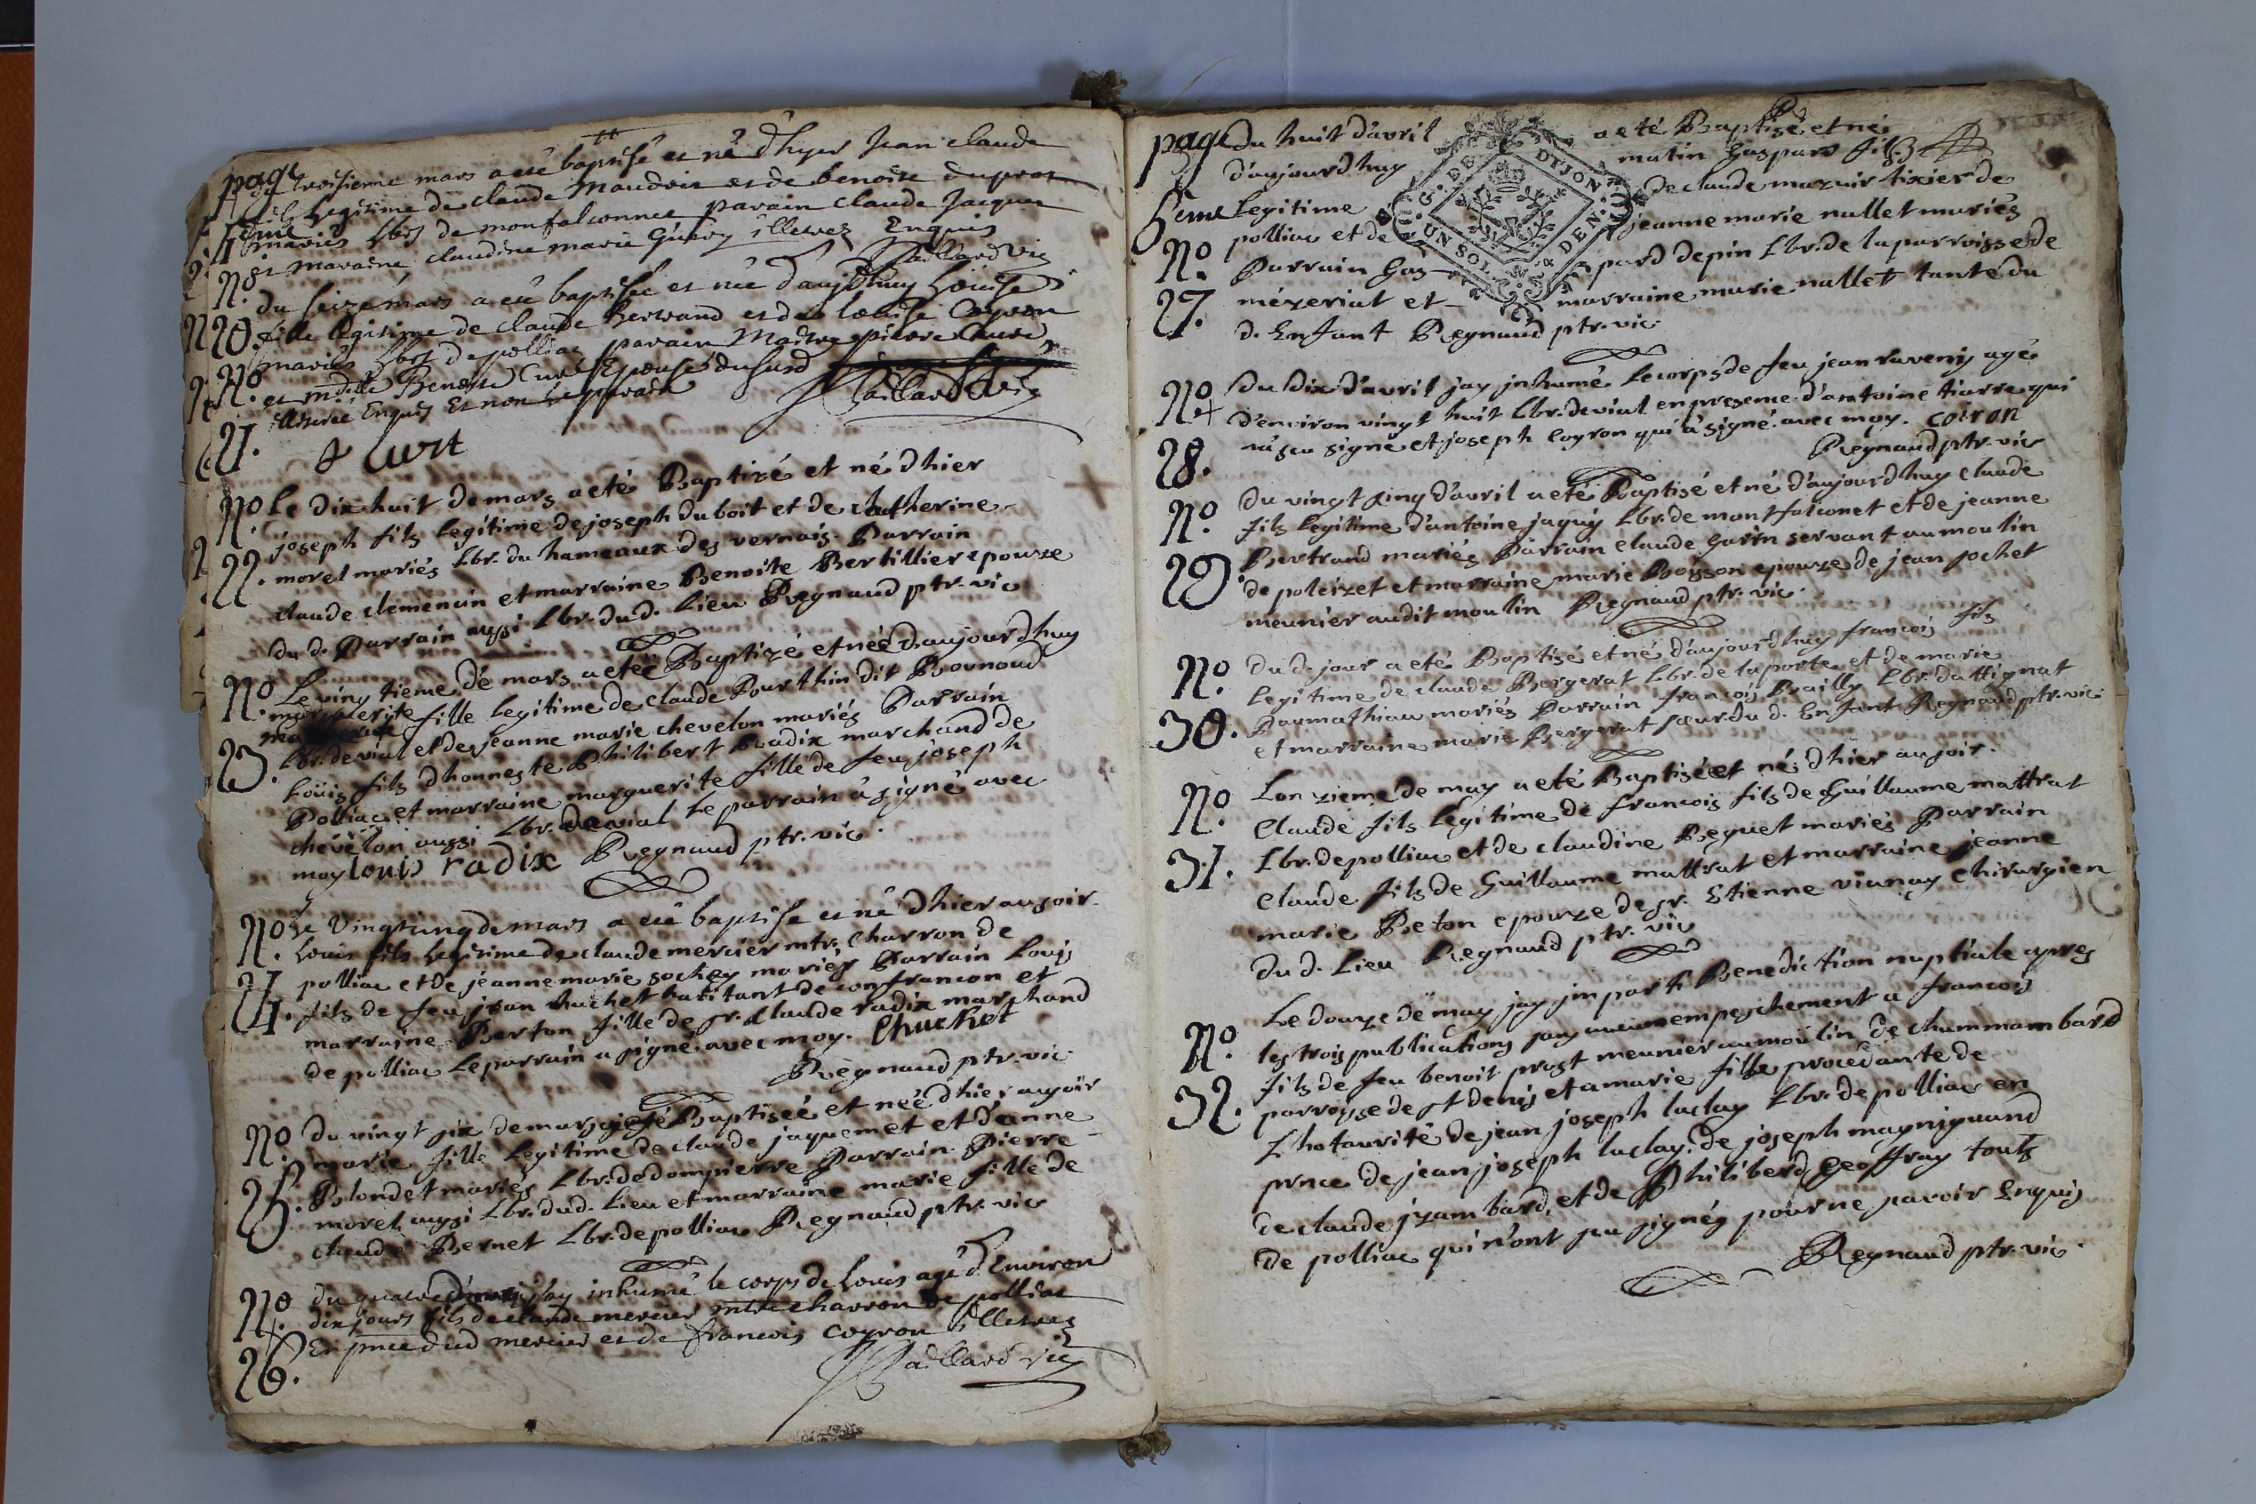 page
4eme
troisieme mars a eté baptisé et né dhyer Jean claude
fils legitime de claude Maudoit et de benoite duprat
mariés Lbrs de monfalconnet parain claude Jacquet
et maraine claudine marie illetrez Enquis
Gaillard vic
No
20.
du seize mars a eté baptisée et née daujdhuy Loüise
fille legitime de claude Bertrand et de Coyron
mariés Lbrs de polliac parain Maitre pierre Curt
et Benoite Curt Epouse du
illitérée Enquis Et non le parain
Gaillard vic
No
21.
Curt
No
22.
Le dix huit de mars a eté Baptizé et né dhier
joseph fils legitime de joseph du boit et de catherine
morel mariés Lbr. du hameaux des vernais Parrain
claude clemencin et marraine Benoite Bertillier epouze
du d. Parrain aussi Lbr. du d. Lieu Regnaud ptr. vic
No
23.
Le vingtieme de mars a eteé Baptizé et neé d'aujourdhuy
marguerite fille legitime de claude Pourthin dit Bournaud
Lbr. de vial et de jeanne marie chevelon mariés Parrain
Loüis fils dhonneste Philibert Radix marchand de
Polliac et marraine marguerite fille de feu joseph
chevelon aussi Lbr. de vial Le parrain a signé avec
moy louis radix Regnaud ptr. vic
No
24.
Le vingtcinq de mars a eté baptisé et né dhier au soir
Louis fils Legitime de claude mercier mtr. charron de
polliac et de jeanne marie sochey mariés Parrain Louis
fils de feu jean chuchet habitant de confrancon et
marraine Berton fille de sr. claude radix marchand
de polliac Le parrain a signé avec moy. Chuchet
Regnaud ptr. vic
No
25.
du vingt six de mars a eté Baptiseé et neé dhier au soir
marie fille legitime de claude jaquemet et d'anne
Blondet mariés Lbr. de dompierre Parrain Pierre
morel aussi Lbr. du d. Lieu et marraine marie fille de
claude Bernet Lbr. de polliac Regnaud ptr. vic
No
26.
du quatre d'avril j'ay inhumé le corps de Louis agé d'Environ
dix jours fils de claude mercier mtre charron de polliac
En pnce dud mercier et de francois coyron illetrez
Gaillard vic
page
5eme
No
27.
du huit d'avril a eté Baptizé et né
d'aujourdhuy matin Gaspard fils
Legitime de claude mazuir tixier de
polliac et de jeanne marie nallet mariés
Parrain Gaspard depin Lbr. de la parroisse de
mézeriat et marraine marie nallet tante du
d. Enfant Regnaud ptr. vic
No
28.
du dix d'avril jay inhumé Le corps de feu jean raveny agé
d'environ vingt huit Lbr. de vial en presence d'antoine tiarre qui
n'a seu signé et joseph coyron qui a signé avec moy. coiron
Regnaud ptr. vic
No
29.
du vingt cinq d'avril a eté Baptisé et né d'aujourdhuy claude
fils Legitime d'antoine jaquy Lbr. de montfalconet et de jeanne
Bertrand mariés Parrain claude Garin servant au moulin
de poleizet et marraine marie Boisson epouze de jean sochet
meunier audit moulin Regnaud ptr. vic
No
30.
du d. jour a eté Baptisé et né d'aujourdhuy francois fils
Legitime de claude Bergerat Lbr. de la porte et de marie
Daumathiau mariés Parrain francois Bailly Lbr. d'attignat
et marraine marie Bergerat soeur du d. Enfant Regnaud ptr. vic
No
31.
Lonzieme de may a eté Baptisé et né dhier au soir
Claude fils Legitime de francois fils de Guillaume mattrat
Lbr. de polliac et de claudine Reguet mariés Parrain
claude fils de Guillaume mattrat et marraine jeanne
marie Beton epouze de sr. Etienne viunay chirurgien
du d. Lieu Regnaud ptr. vic
No
32.
Le douze de may jay imparti Benediction nuptiale apres
les trois publications sans aucun empeschement a francois
fils de feu benoit prost meunier au moulin de chammambard
parroisse de st denis et a marie fille procedante de
L'hotaurité de jean joseph luclay Lbr. de polliac en
pnce de jean joseph luclay, de joseph maynignand
de claude jzambard, et de Philiberd Geoffray touts
de polliac qui n'ont seu signés pour ne scavoir Enquis
Regnaud ptr. vic
G. DE DIJON
UN SOL 4 DEN.